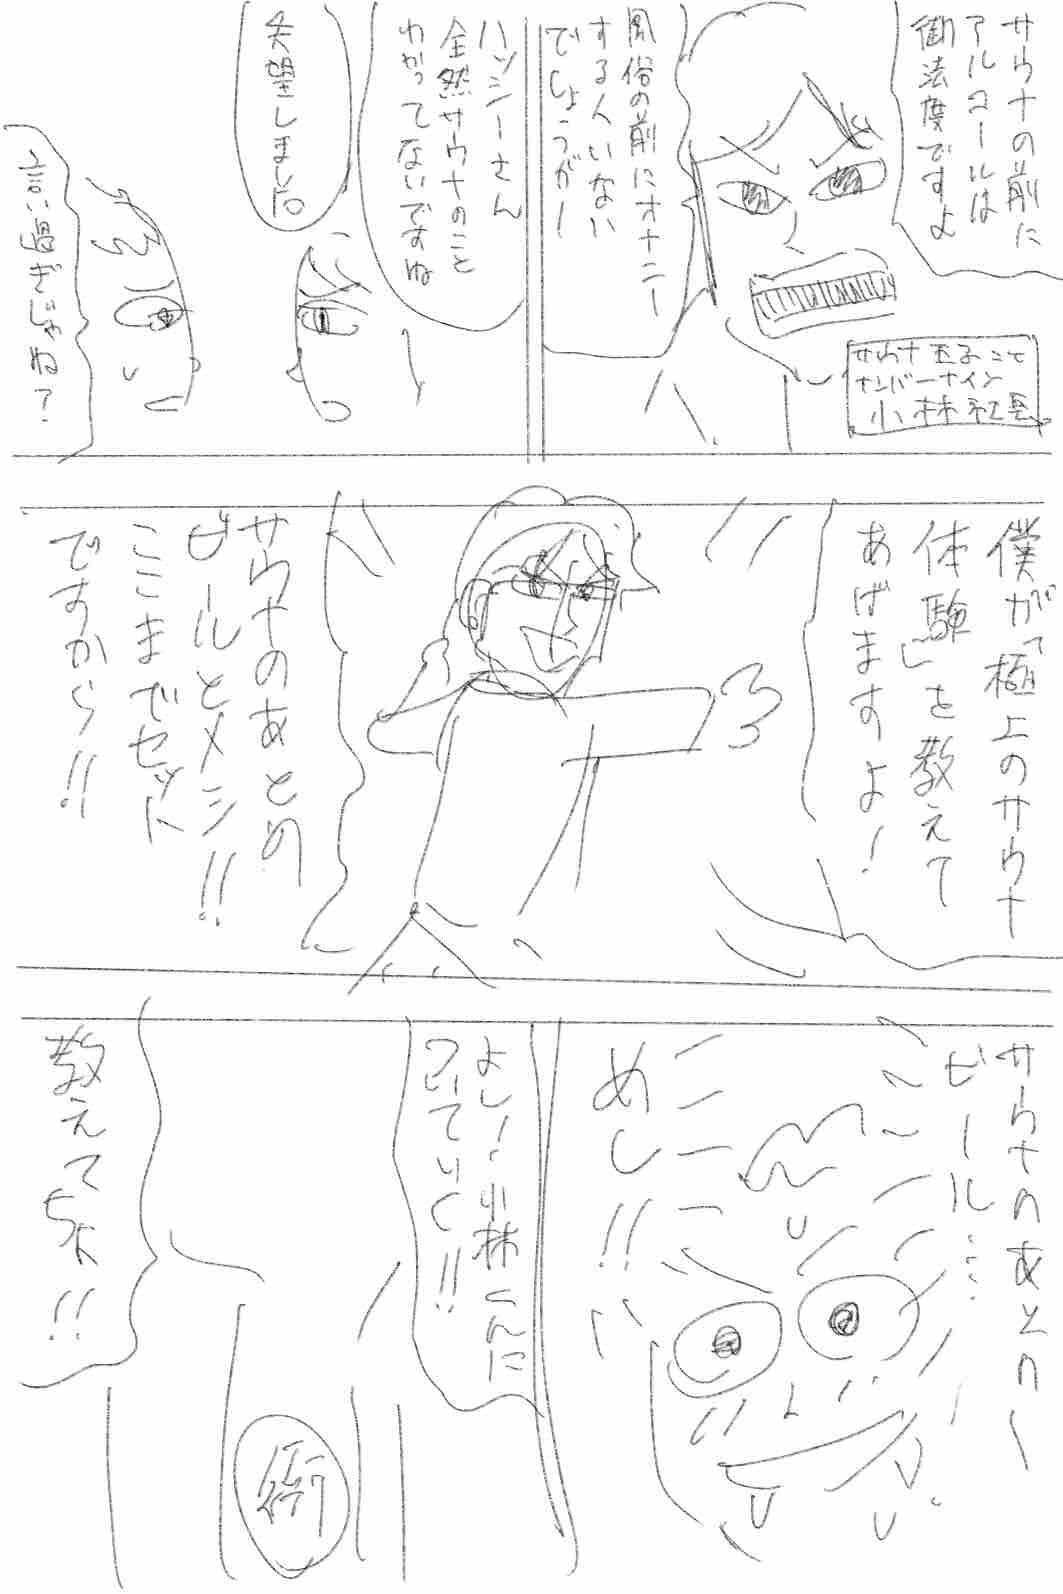 サウナの前に
アルコールは
御法度ですよ
風俗の前にオナニー
する人いない
でしょうがー
サウナ王子こと
ナンバーナイン
小林社長
ハッシーさん
全然サウナのこと
わかってないですね
失望しました
言い過ぎじゃね?
僕が「極上のサウナ
体験」を教えて
あげますよ!
サウナのあとの
ビールとメシ!!
ここまでセット
ですから!!
サウナのあとの〜
ビール…
めし!!
よし!小林くんに
ついていく!!
教えてちょ!!